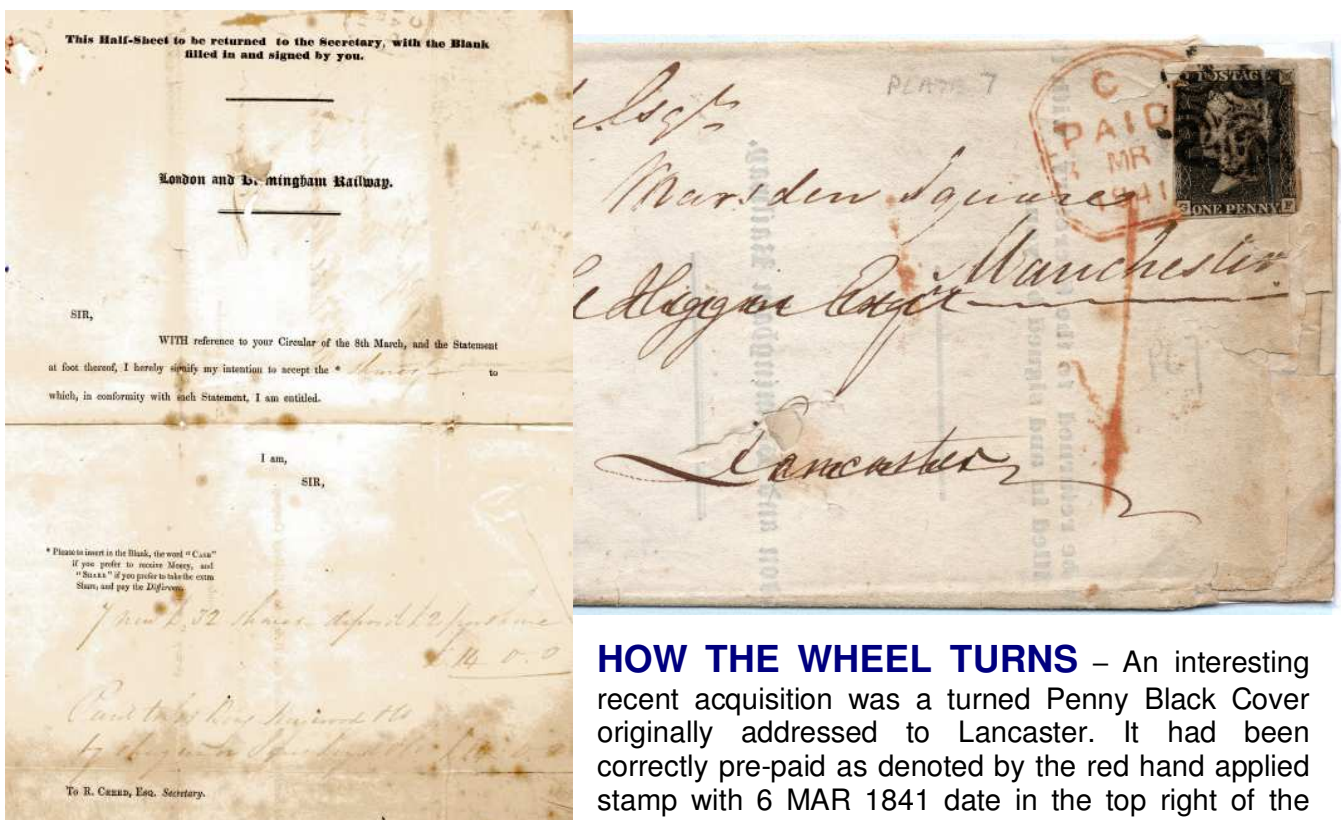 This Half-Sheet to be returned to the Secretary, with the Blank
filled in and signed by you.
London and B mingham Railway.
SIR,
WITH reference to your Circular of the 8th March, and the Statement
at foot thereof, I hereby signify my intention to accept the * to
which, in conformity with such Statement, I am entitled.
I am,
SIR,
* Please to insert in the Blank, the word "CASH"
if you prefer to receive Money, and
"SHARE" if you prefer to take the extra
Share, and pay the Difference.
7 new £32 shares deposit £2 per share
£14 0.0
To R. CREED, ESQ. Secretary.
PLATE 7
C
PAID
MR
1841
POSTAGE
ONE PENNY
Esqr
Marsden Square
Manchester
Higgin Esqr
Lancaster
HOW THE WHEEL TURNS – An interesting
recent acquisition was a turned Penny Black Cover
originally addressed to Lancaster. It had been
correctly pre-paid as denoted by the red hand applied
stamp with 6 MAR 1841 date in the top right of the